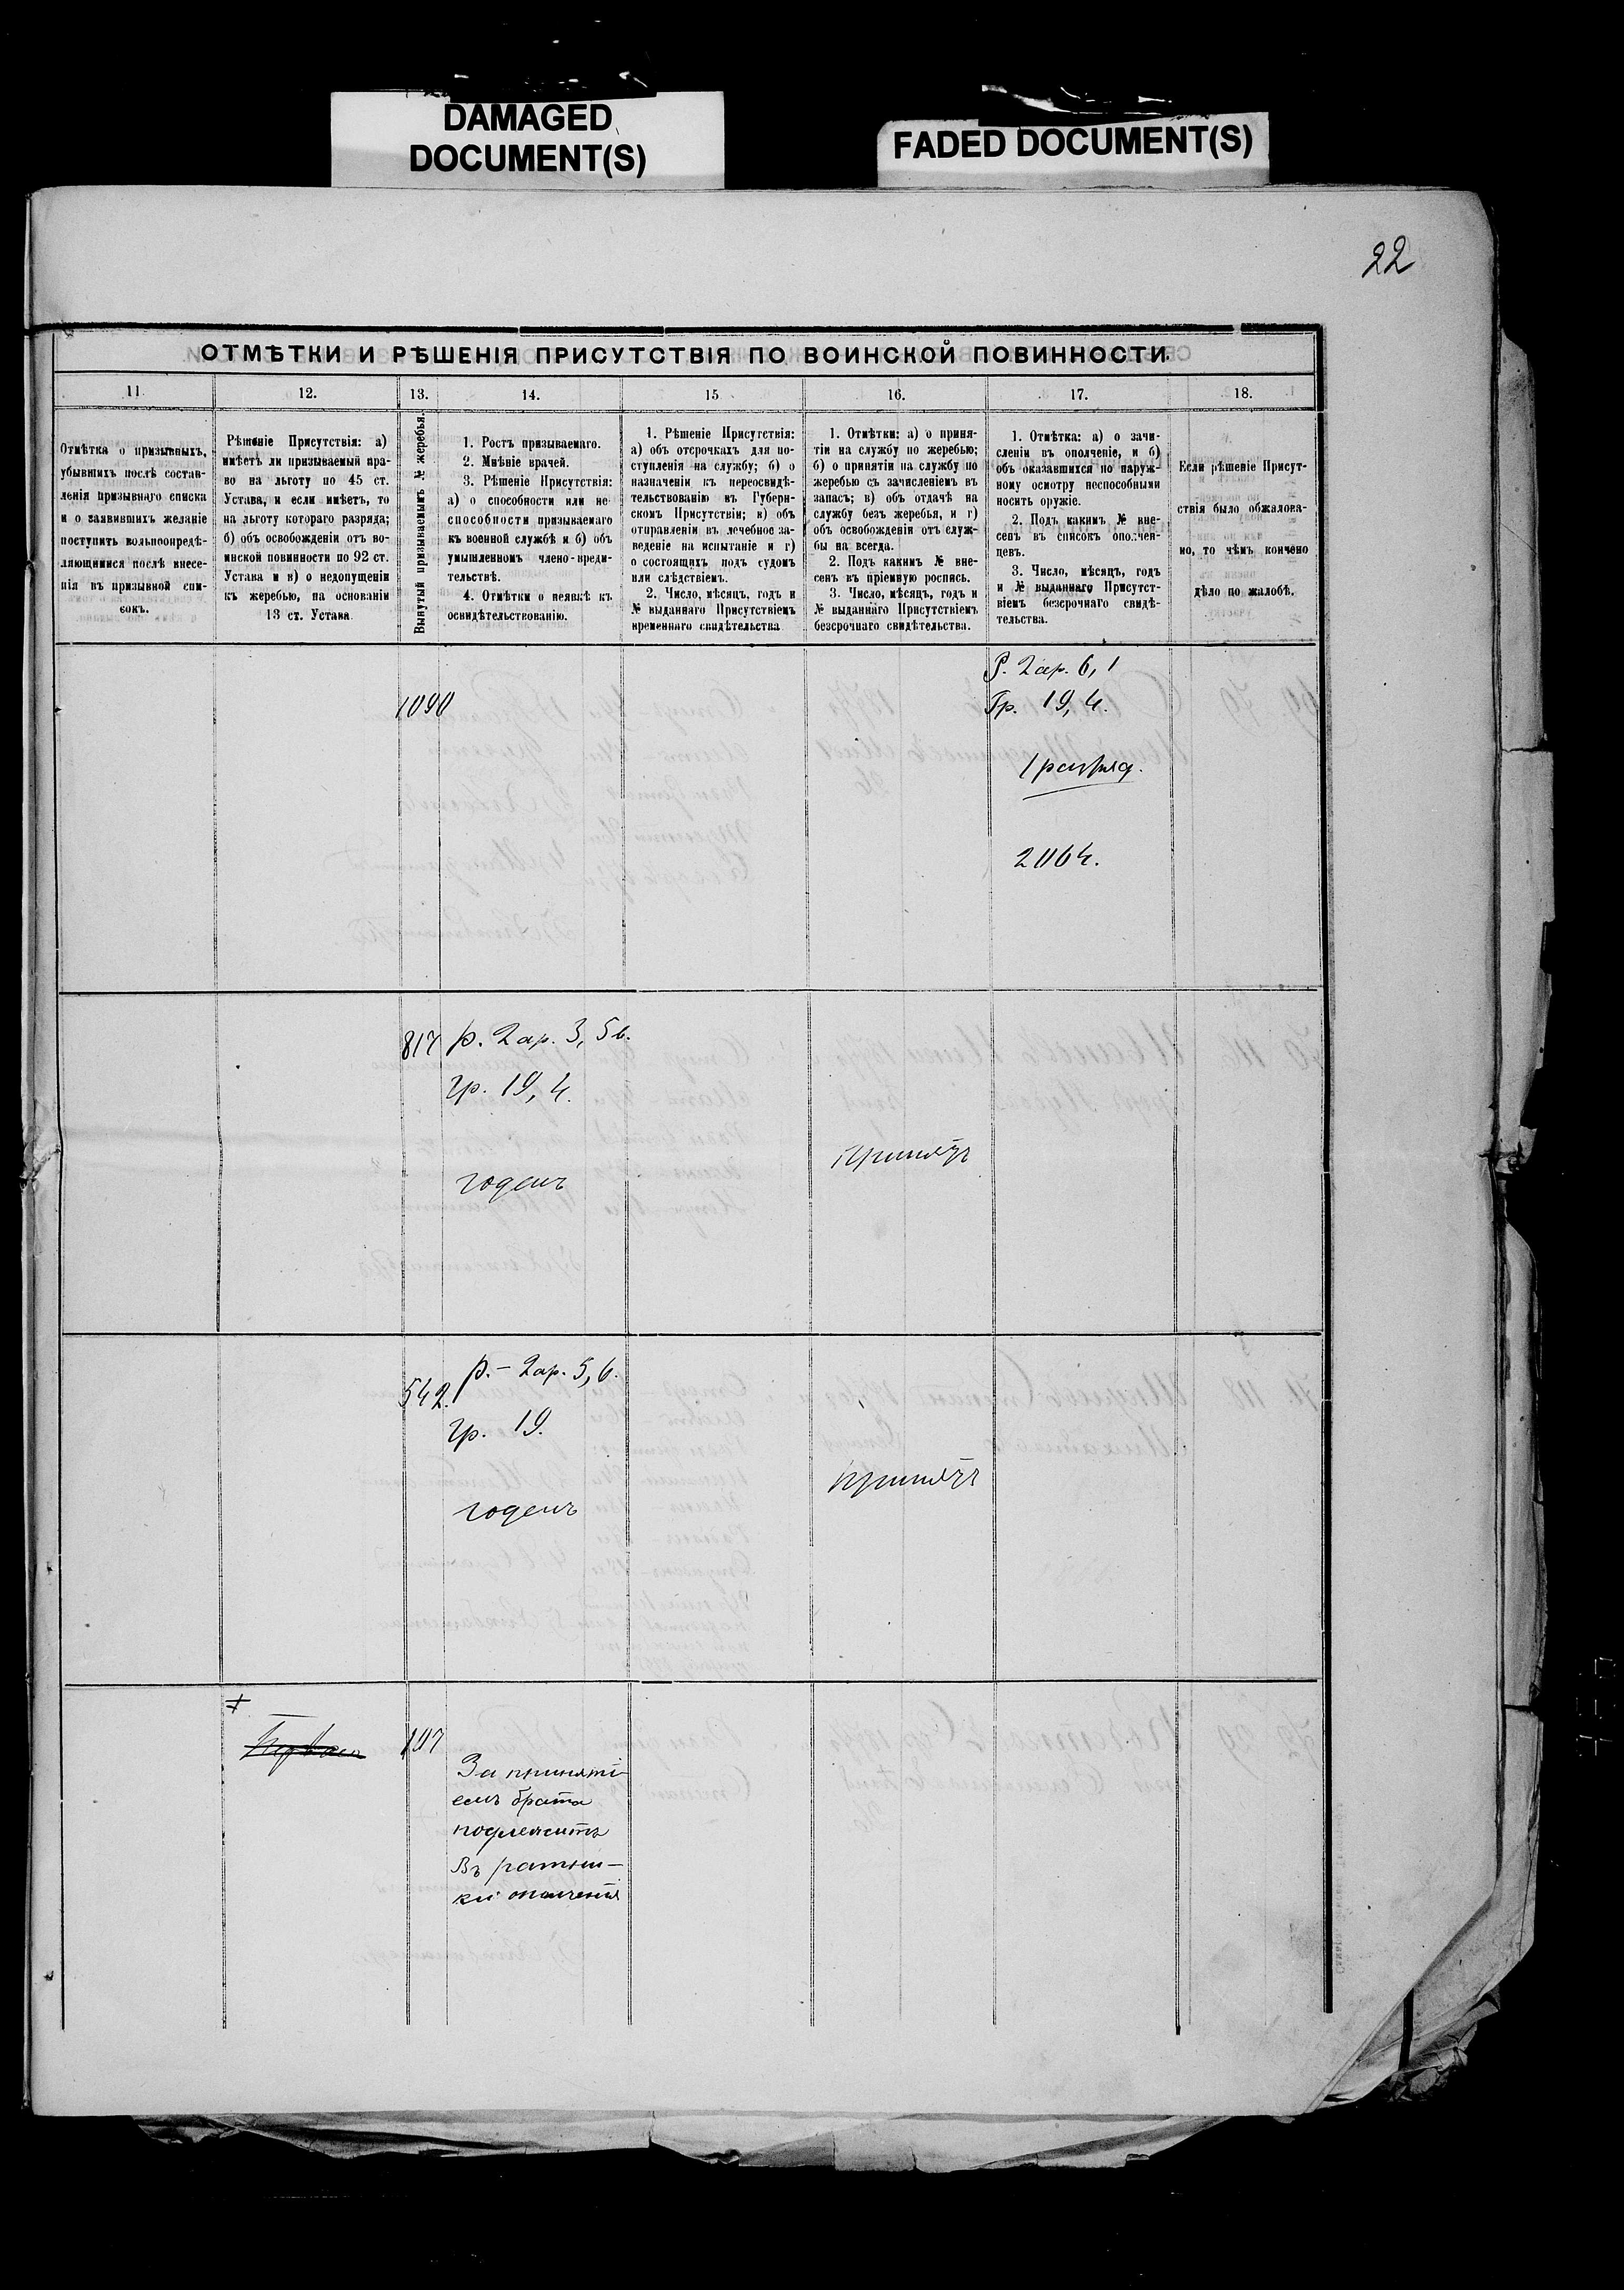 DAMAGED
DOCUMENT(S)
FADED DOCUMENT(S)
22
ОТМѢТКИ И РѢШЕНІЯ ПРИСУТСТВІЯ ПО ВОИНСКОЙ ПОВИННОСТИ.
11.
12.
13.
14.
15
16.
17.
18.
Отмѣтка о призывныхъ,
убывшихъ послѣ состав-
ленія призывнаго списка
и о заявившихъ желаніе
поступить вольноопредѣ-
ляющимися послѣ внесе-
нія въ призывной спи-
сокъ.
Рѣшеніе Присутствія: а)
имѣетъ ли призываемый пра-
во на льготу по 45 ст.
Устава, и если имѣетъ, то
на льготу котораго разряда;
б) объ освобожденіи отъ во-
инской повинности по 92 ст.
Устава и в) о недопущеніи
къ жеребью, на основаніи
13 ст. Устава
Вынутый призываемымъ № жеребья.
1. Ростъ призываемаго.
2. Мнѣніе врачей.
3. Рѣшеніе Присутствія:
а) о способности или не-
способности призываемаго
къ военной службѣ и б) объ
умышленномъ члено-вреди-
тельствѣ.
4. Отмѣтки о неявкѣ къ
освидѣтельствованію.
1. Рѣшеніе Присутствія:
а) объ отсрочкахъ для по-
ступленія на службу; б) о
назначеніи къ переосвидѣ-
тельствованію въ Губерн-
скомъ Присутствіи; в) объ
отправленіи въ лечебное за-
веденіе на испытаніе и г)
о состоящихъ подъ судомъ
или слѣдствіемъ.
2. Число, мѣсяцъ, годъ и
№ выданнаго Присутствіемъ
временнаго свидѣтельства
1. Отмѣтки: а) о приня-
тіи на службу по жеребью;
б) о принятіи на службу по
жеребью съ зачисленіемъ въ
запасъ; в) объ отдачѣ на
службу безъ жеребья, и г)
объ освобожденіи отъ служ-
бы на всегда.
2. Подъ какимъ № вне-
сенъ въ пріемную роспись.
3. Число, мѣсяцъ, годъ и
№ выданнаго Присутствіемъ
безсрочнаго свидѣтельства.
1. Отмѣтка: а) о зачи-
сленіи въ ополченіе, и б)
объ оказавшихся по наруж-
ному осмотру неспособными
носить оружіе.
2. Подъ какимъ № вне-
сенъ въ списокъ ополчен-
цевъ.
3. Число, мѣсяцъ, годъ
и № выданнаго Присутст-
віемъ безсрочнаго свидѣ-
тельства.
Если рѣшеніе Присут-
ствія было обжалова-
но, то чѣмъ кончено
дѣло по жалобѣ.
1090
Р. 2 ар. 6, 1
Гр. 19, 4.
1 разряд.
2064.
817
р. 2 ар. 3, 5 в.
гр. 19, 4.
годенъ
Принятъ
542.
р. - 2 ар. 5, 6.
гр. 19.
годенъ
принятъ
197
За приняті-
емъ брата
подлежитъ
въ ратни-
ки ополченія